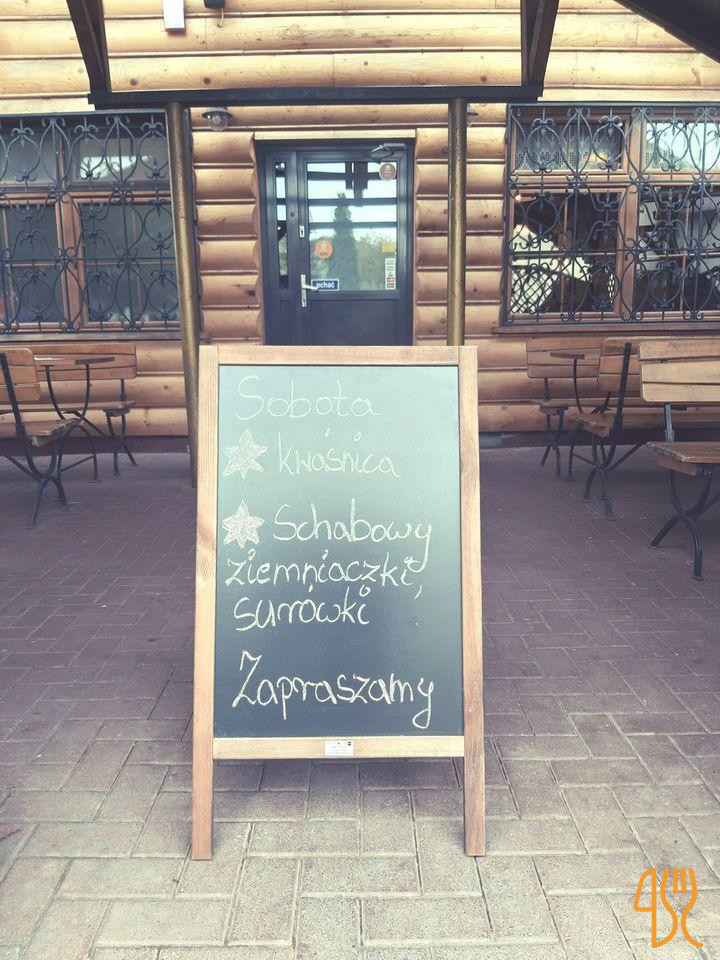 pchać
Sobota
kwaśnica
Schabowy
ziemniaczki,
surówki
Zapraszamy